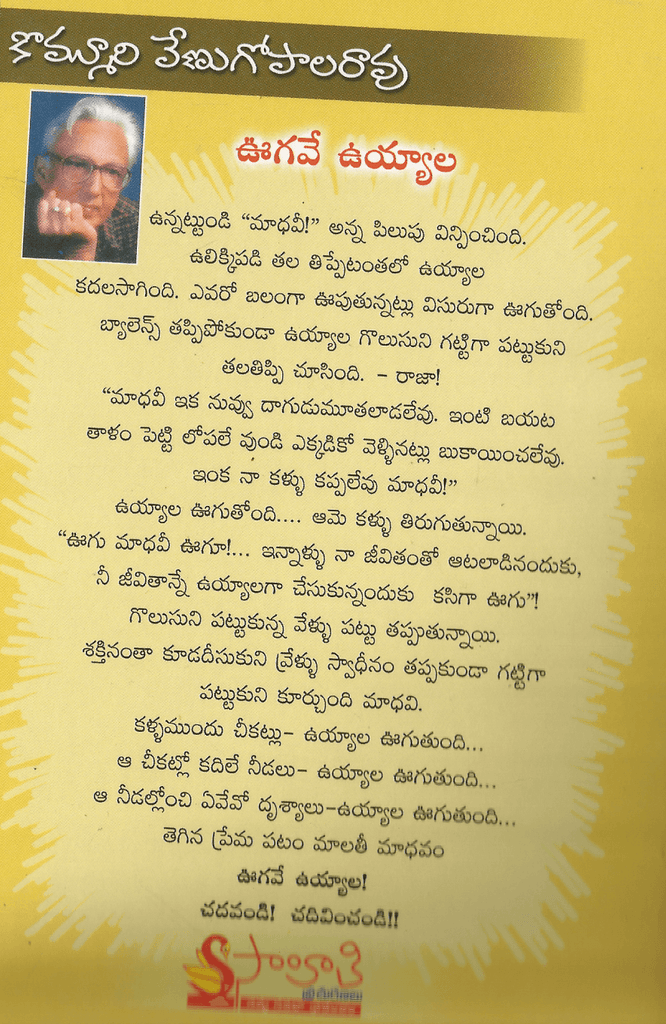 కొమ్మూరి వేణుగోపాలరావు
ఊగవే ఉయ్యాల
ఉన్నట్టుండి “మాధవీ!” అన్న పిలుపు విన్పించింది.
ఉలిక్కిపడి తల తిప్పేటంతలో ఉయ్యాల
కదలసాగింది. ఎవరో బలంగా ఊపుతున్నట్లు విసురుగా ఊగుతోంది.
బ్యాలెన్స్ తప్పిపోకుండా ఉయ్యాల గొలుసుని గట్టిగా పట్టుకుని
తలతిప్పి చూసింది. – రాజా!
“మాధవీ ఇక నువ్వు దాగుడుమూతలాడలేవు. ఇంటి బయట
తాళం పెట్టి లోపలే వుండి ఎక్కడికో వెళ్ళినట్లు బుకాయించలేవు.
ఇంక నా కళ్ళు కప్పలేవు మాధవీ!”
ఉయ్యాల ఊగుతోంది.... ఆమె కళ్ళు తిరుగుతున్నాయి.
“ఊగు మాధవీ ఊగూ!... ఇన్నాళ్ళు నా జీవితంతో ఆటలాడినందుకు,
నీ జీవితాన్నే ఉయ్యాలగా చేసుకున్నందుకు కసిగా ఊగు”!
గొలుసుని పట్టుకున్న వేళ్ళు పట్టు తప్పుతున్నాయి.
శక్తినంతా కూడదీసుకుని వ్రేళ్ళు స్వాధీనం తప్పకుండా గట్టిగా
పట్టుకుని కూర్చుంది మాధవి.
కళ్ళముందు చీకట్లు– ఉయ్యాల ఊగుతుంది...
ఆ చీకట్లో కదిలే నీడలు– ఉయ్యాల ఊగుతుంది...
ఆ నీడల్లోంచి ఏవేవో దృశ్యాలు–ఉయ్యాల ఊగుతుంది...
తెగిన ప్రేమ పటం మాలతీ మాధవం
ఊగవే ఉయ్యాల!
చదవండి! చదివించండి!!